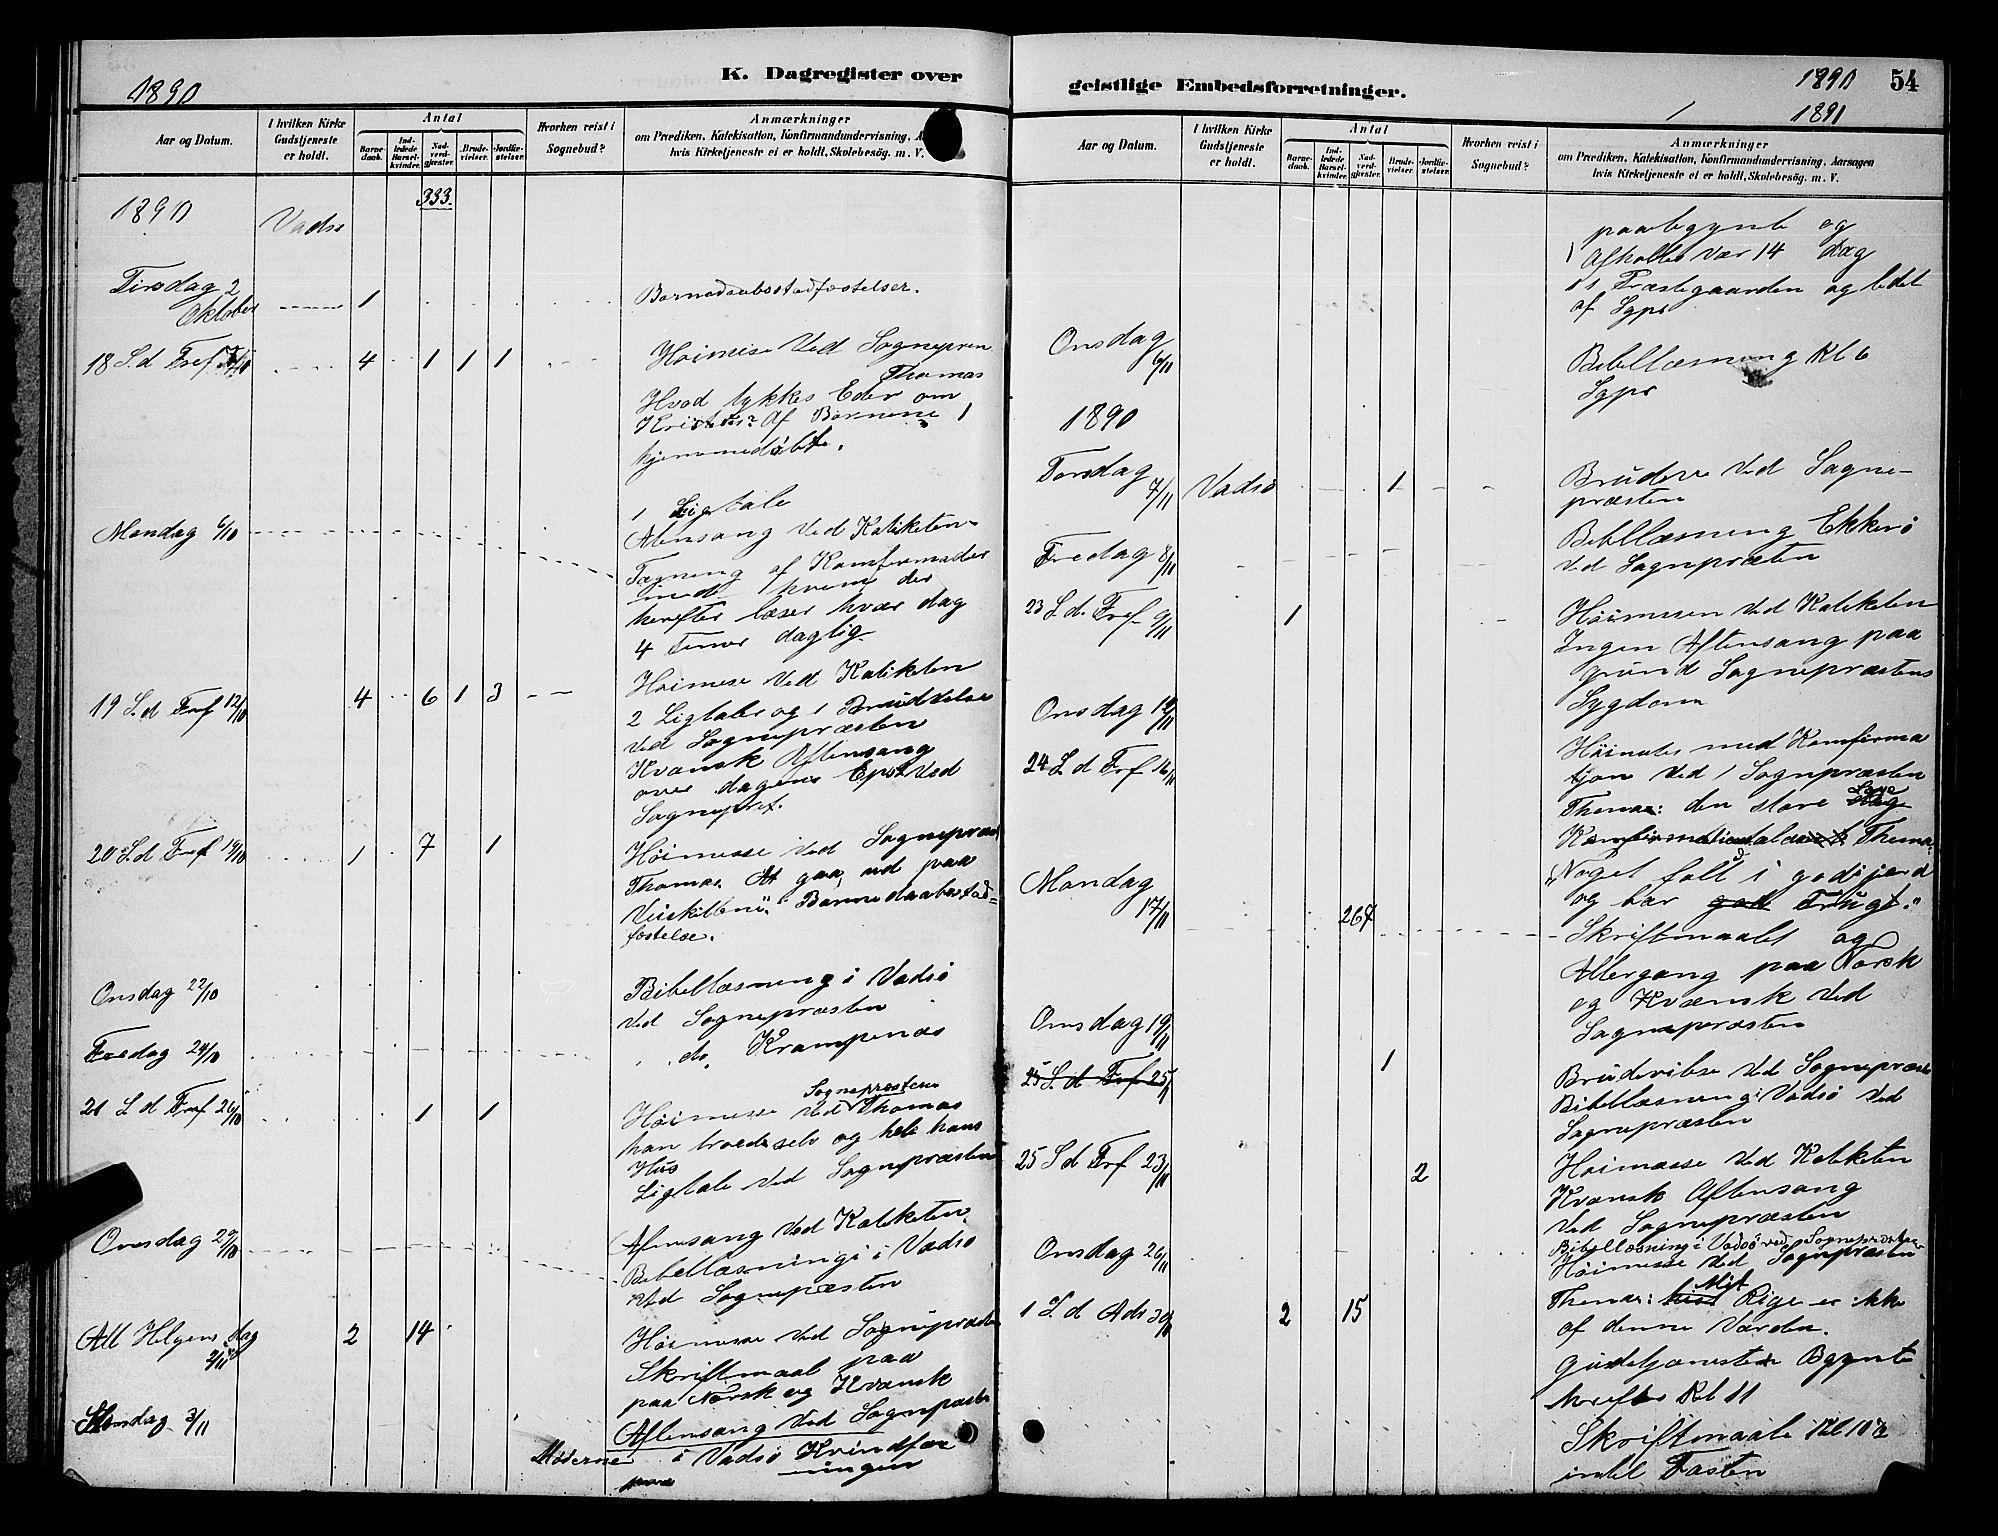 K. Dagregister over
1890
Aar og Datum.
I hvilken Kirke Gudstjeneste er holdt.
Antal
Barnedaab.
Indledede Barselkvinder.
Nadverdgjester.
Brudevielser.
Jordfæstelser.
Hvorhen reist i Sognebud?
Anmærkninger
om Prædiken, Katekisation, Konfirmandundervisning,
hvis Kirketjeneste ei er holdt, Skolebesøg. m. V.
333.
1890 Vadsø
Tirsdag 2
Oktober 1 Barnedaabsstadfæstelser.
18 S. d Tref 5/10 4 1 1 1 Høimese Ved Sognepren
Thomas
Hvad tykkes Eder om
Kristus? Af Børnene 1
hjemmedøbt.
1 Ligtale
Mandag 6/10 Aftensang Ved Katiketen
Tægning af Komfermader
med hvem der
herefter læser hvær dag
4 Timer daglig
19 S. d Tref 12/10 4 6 1 3 Høimese Ved Katiketen
2 Ligtaler og 1
Ved Sognepræsten
Kvænsk Aftensang
over dagens Epst Ved
Sognepræt.
20 S. d Tref 19/10 1 7 1 Høimesse ved Sognepræs
Thomas. At gaa ud paa
Veiskillene". Barnedaabsstad=
fæstelse.
Onsdag 22/10 Bibellæsning i Vadsø
Ved Sognepræsten
Fredag 24/10 " do, Krampenæs
Sognepræsten
21 S d Tref 26/10 1 1 Høimesse Ved Thomas
han troede selv og hele hans
Hus
Ligtale Ved Sognepræsten
Aftensang Ved Katiketen.
Onsdag 29/10 Bibellæsning i Vadsø
Ved Sognepræsten
All Helgens dag
2/11 2 14 Høimesse Ved Sognepræsten
Skriftmaal paa
paa Norsk og Kvænsk
Mandag 3/11 Aftensang Ved Sognepræsten
Møderne i Vadsø Kvindfor
eningen
geistlige Embedsforretninger.
1890 54
1891
Aar og Datum.
I hvilken Kirke Gudstjeneste er holdt.
Antal
Barnedaab.
Indledede Barselkvinder.
Nadverdgjester.
Brudevielser.
Jordfæstelser.
Hvorhen reist i Sognebud?
Anmærkninger
om Prædiken, Katekisation, Konfirmandundervisning, Aarsagen
hvis Kirketjeneste ei er holdt, Skolebesøg. m. V.
paabegynt og
Afholdes vær 14 dag
Præstegaarden og ledet
af Sgpr
Onsdag
6/11 Bibellæsning Kl 6
Sgpr
1890
Torsdag
7/11 Vadsø 1 Ved Sogne-
præsten
Fredag 8/11 Bibllæsning Ekkerö
Ved Sognepræten
23 S. d. Tref 9/11 1 Høimesen Ved Katiketen
Ingen Aftensang paa
grund Sognepræstens
Sygdom
Onsdag 12/11
24 S d Tref 16/11 med Komfirma
tjon Ved Sognepræsten
Thema: den store
Thema:
"Noget falt i god jord
og bar god Frugt."
Mandag
17/11 264 Skriftmaalet og
Altergang paa Norsk
og Kvænsk Ved
Sognepræsten
Onsdag 19/11
25 S. d Tref 25/11 1 Ved Sognepræste
Bibellæsning i Vadsø Ved
Sognepræsten
25 S d Tref 23/11 2 Høimæsse Ved Katiketen
Kvænsk Aftensang
Ved Sognepræsten
Onsdag 26/11 Bibellæsning i Vadsø ved Sognepræsten
Høimesse Ved Sognepræsten
1 S. d Adv 30/11 2 15 Thema: Mit Rige er ikke
af denne Værden.
Gudstjenesten Bgynte
herefter Kl 11
Skriftmaale Kl 10 1/2
intil Fasten